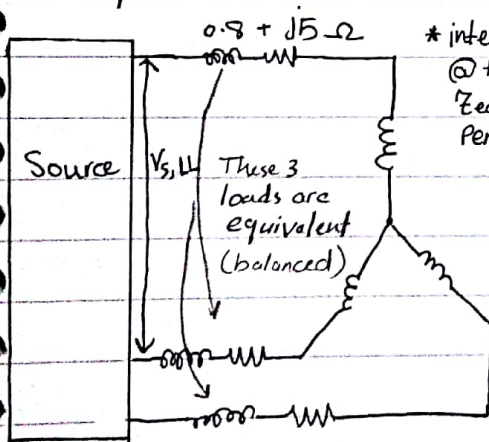 0.8 + j5 Ω
* inte
@
Source
Vs, LL
These 3
loads are
equivalent
(balanced)